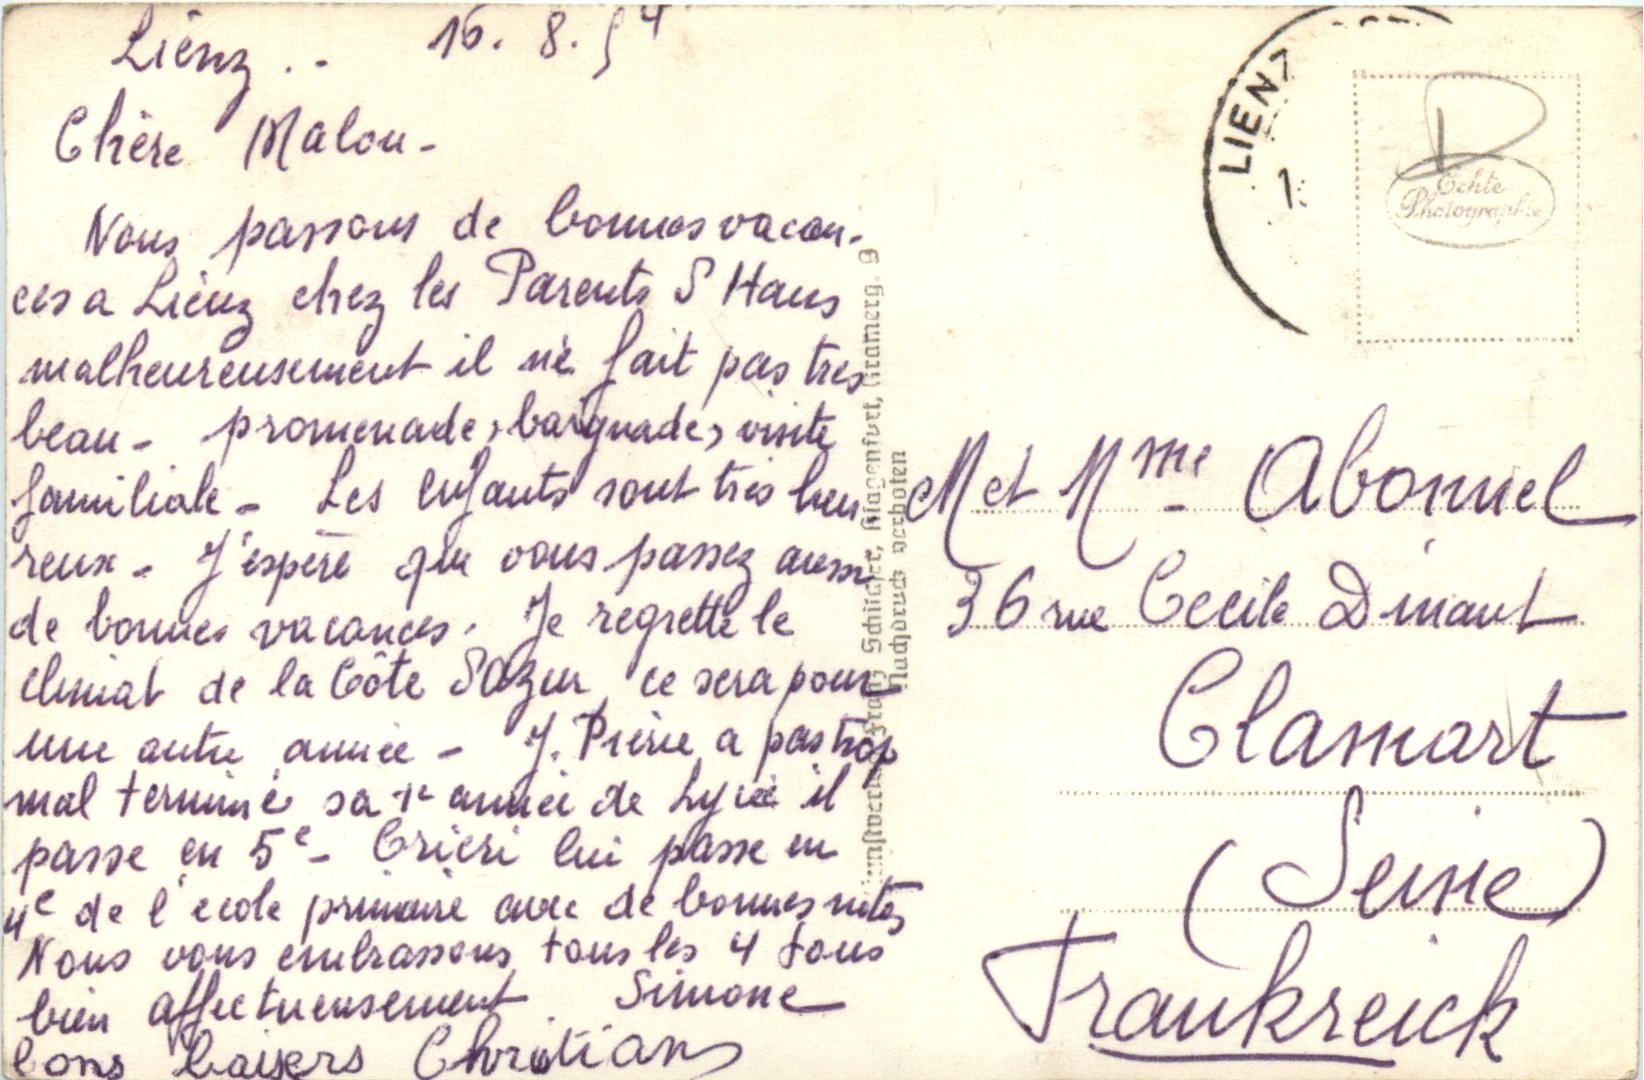 Liénz .. 16. 8. 54
Chère Malou -
Nous passons de bonnes vacan-
ces a Liénz chez les Parents d Hans
malheureusement il ne fait pas tres
beau - promenade, baignade, visite
familiale - Les enfants sont tres heu
reux - J'espere que vous passez aussi
de bonnes vacances. Je regrette le
climat de la Côte d'Azur ce sera pour
une autre année - J. Pierre a pas trop
mal terminé sa 1e année de Lycée il
passe en 5e - lui passe en
4e de l'école primaire avec de bonnes notes
Nous vous embrassons tous les 4 tous
bien affectueusement. Simone
bons baisers Christian
LIENZ
1
D
Echte
Photographie
Kunstverlag Franz Schilcher, Klagenfurt, Gramerg. 9
Nachdruck verboten
M et Mme Abonnel
36 rue Cecile Dinant
Clamart
(Seine)
Frankreick